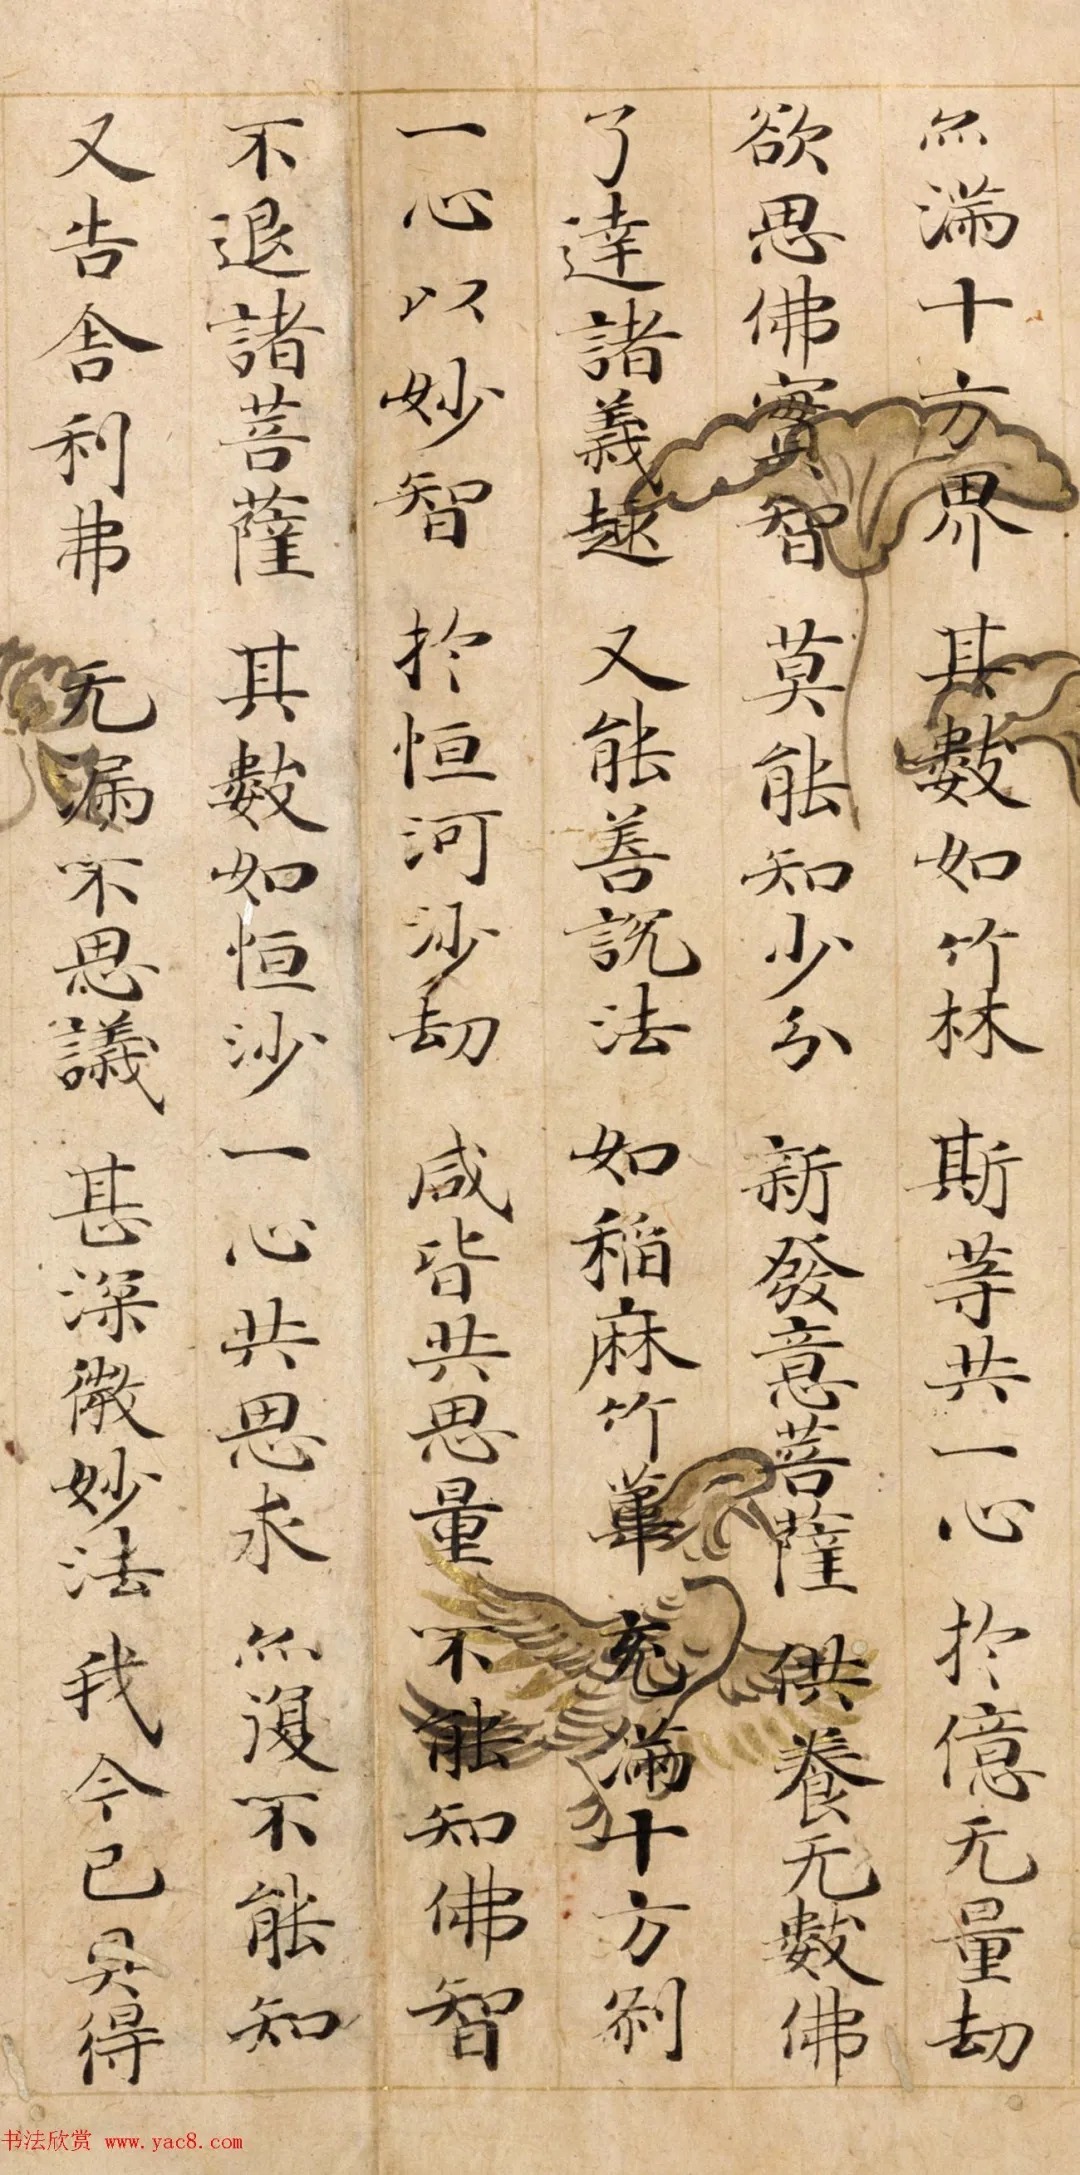 亦滿十方界 其數如竹林 斯等共一心 扵億无量劫
欲思佛實智 莫能知少分 新發意菩薩 供養无數佛
了達諸義趣 又能善說法 如稻麻竹葦 充滿十方剎
一心以妙智 扵恒河沙劫 咸皆共思量 不能知佛智
不退諸菩薩 其數如恒沙 一心共思求 亦復不能知
又告舍利弗 无漏不思議 甚深微妙法 我今已具得
书法欣赏 www.yac8.com